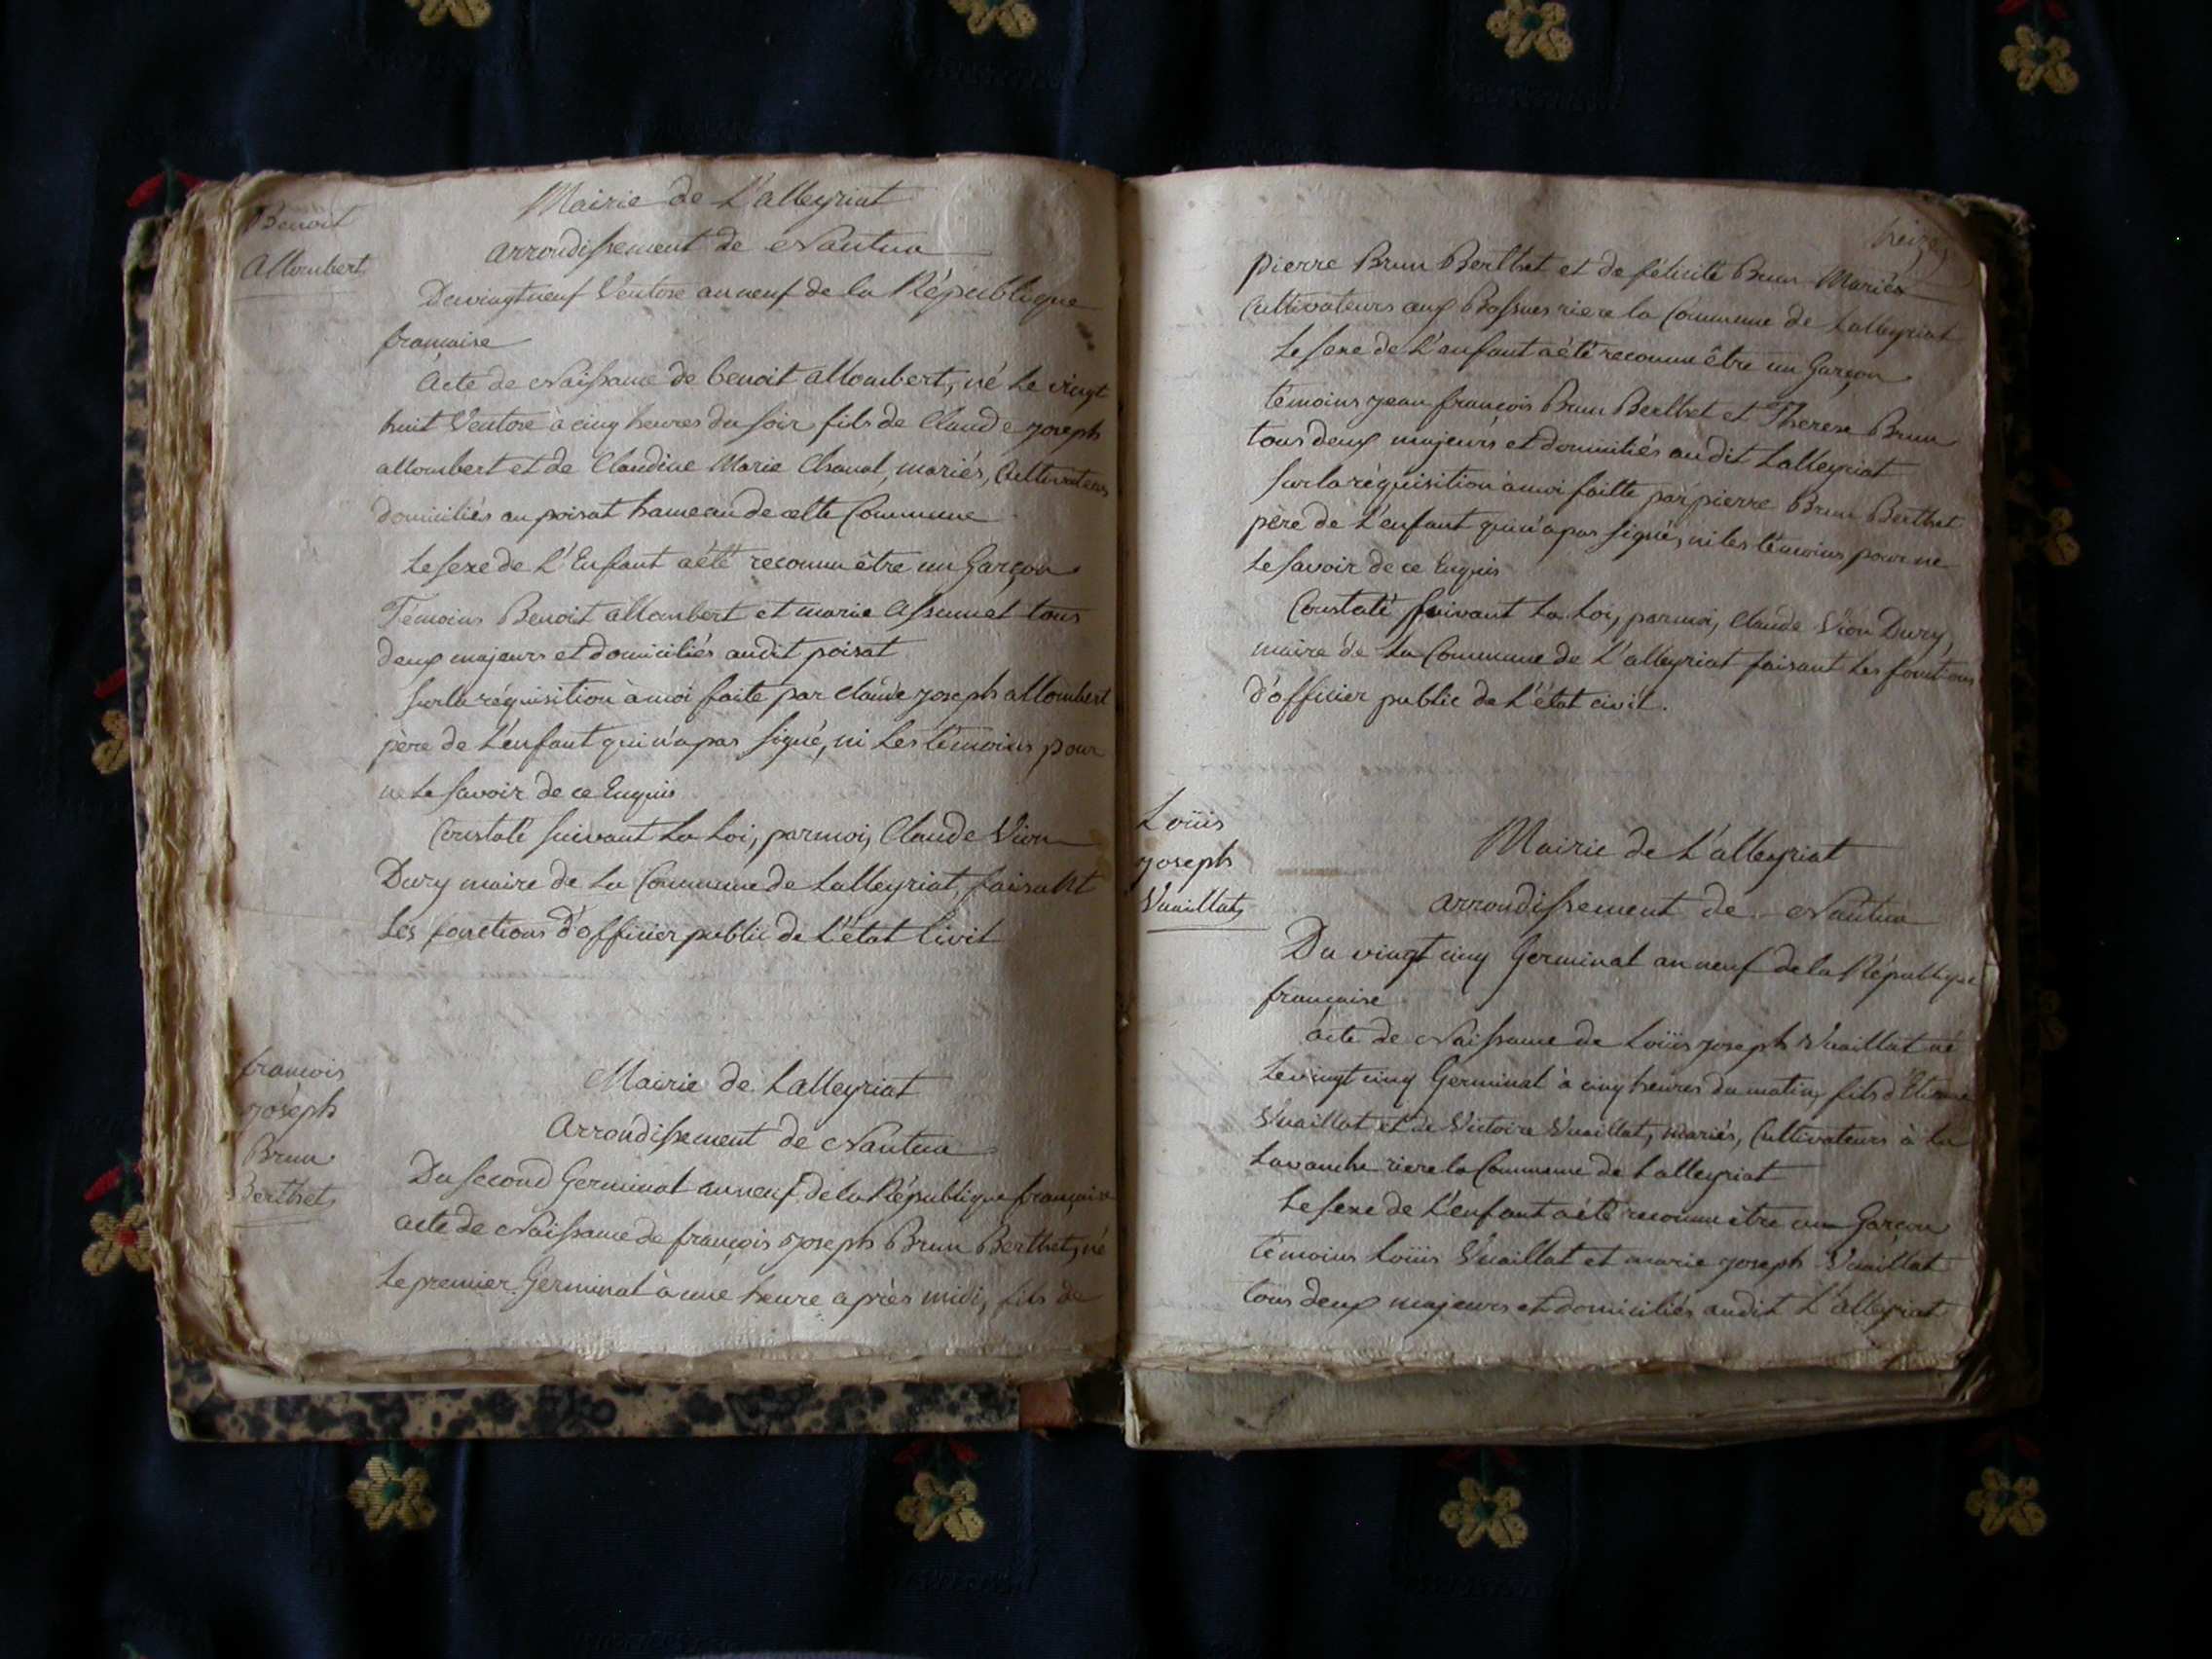 Benoit
Allombert
Mairie de L'alleyriat
arrondissement de Nantua
Du vingt neuf Ventose an neuf de la République
française
Acte de Naissance de benoit allombert, né le vingt
huit Ventose à cinq heures du soir fils de Claude joseph
allombert et de Claudine Marie Chanal, mariés, Cultivateurs
domiciliés au poisat hameau de cette Commune
Le sexe de L'Enfant a été reconnu être un Garçon
Témoins Benoit allombert et marie assumel tous
deux majeurs et domiciliés audit poisat
Sur la réquisition à moi faite par claude joseph allombert
père de L'enfant qui n'a pas signé, ni les témoins pour
ne le savoir de ce Enquis
Constaté suivant La Loi, par moi, Claude Vion
Dury maire de La Commune de Lalleyriat, faisant
Les fonctions d'officier public de L'état Civil
françois
joseph
Brun
Berthet
Mairie de Lalleyriat
Arrondissement de Nantua
Du second Germinal an neuf de la République française
acte de Naissance de françois joseph Brun Berthet, né
Le premier Germinal à une heure après midi, fils de
pierre Brun Berthet et de félicité Brun Mariés
Cultivateurs aux riere la Commune de Lalleyriat
Le sexe de L'enfant a été reconnu être un Garçon
témoins jean françois Brun Berthet et Thérese Brun
tous deux majeurs et domiciliés audit Lalleyriat
Sur la réquisition à moi faitte par pierre Brun Berthet
père de L'enfant qui n'a pas signé, ni les témoins pour ne
Le savoir de ce Enquis
Constaté suivant La Loi, par moi, Claude Vion Dury,
maire de La Commune de L'alleyriat faisant Les fonctions
d'officier public de L'état civil.
Loüis
joseph
Vuaillat
Mairie de L'alleyriat
arrondissement de Nantua
Du vingt cinq Germinal an neuf de la République
française
acte de Naissance de Loüis joseph Vuaillat né
Le vingt cinq Germinal à cinq heures du matin, fils d'Etienne
Vuaillat et de Victoire Vuaillat, mariés, Cultivateurs à La
Lavanche riere la Commune de Lalleyriat
Le sexe de L'enfant a été reconnu être un Garçon
témoins Loüis Vuaillat et marie joseph Vuaillat
tous deux majeurs et domiciliés audit L'alleyriat